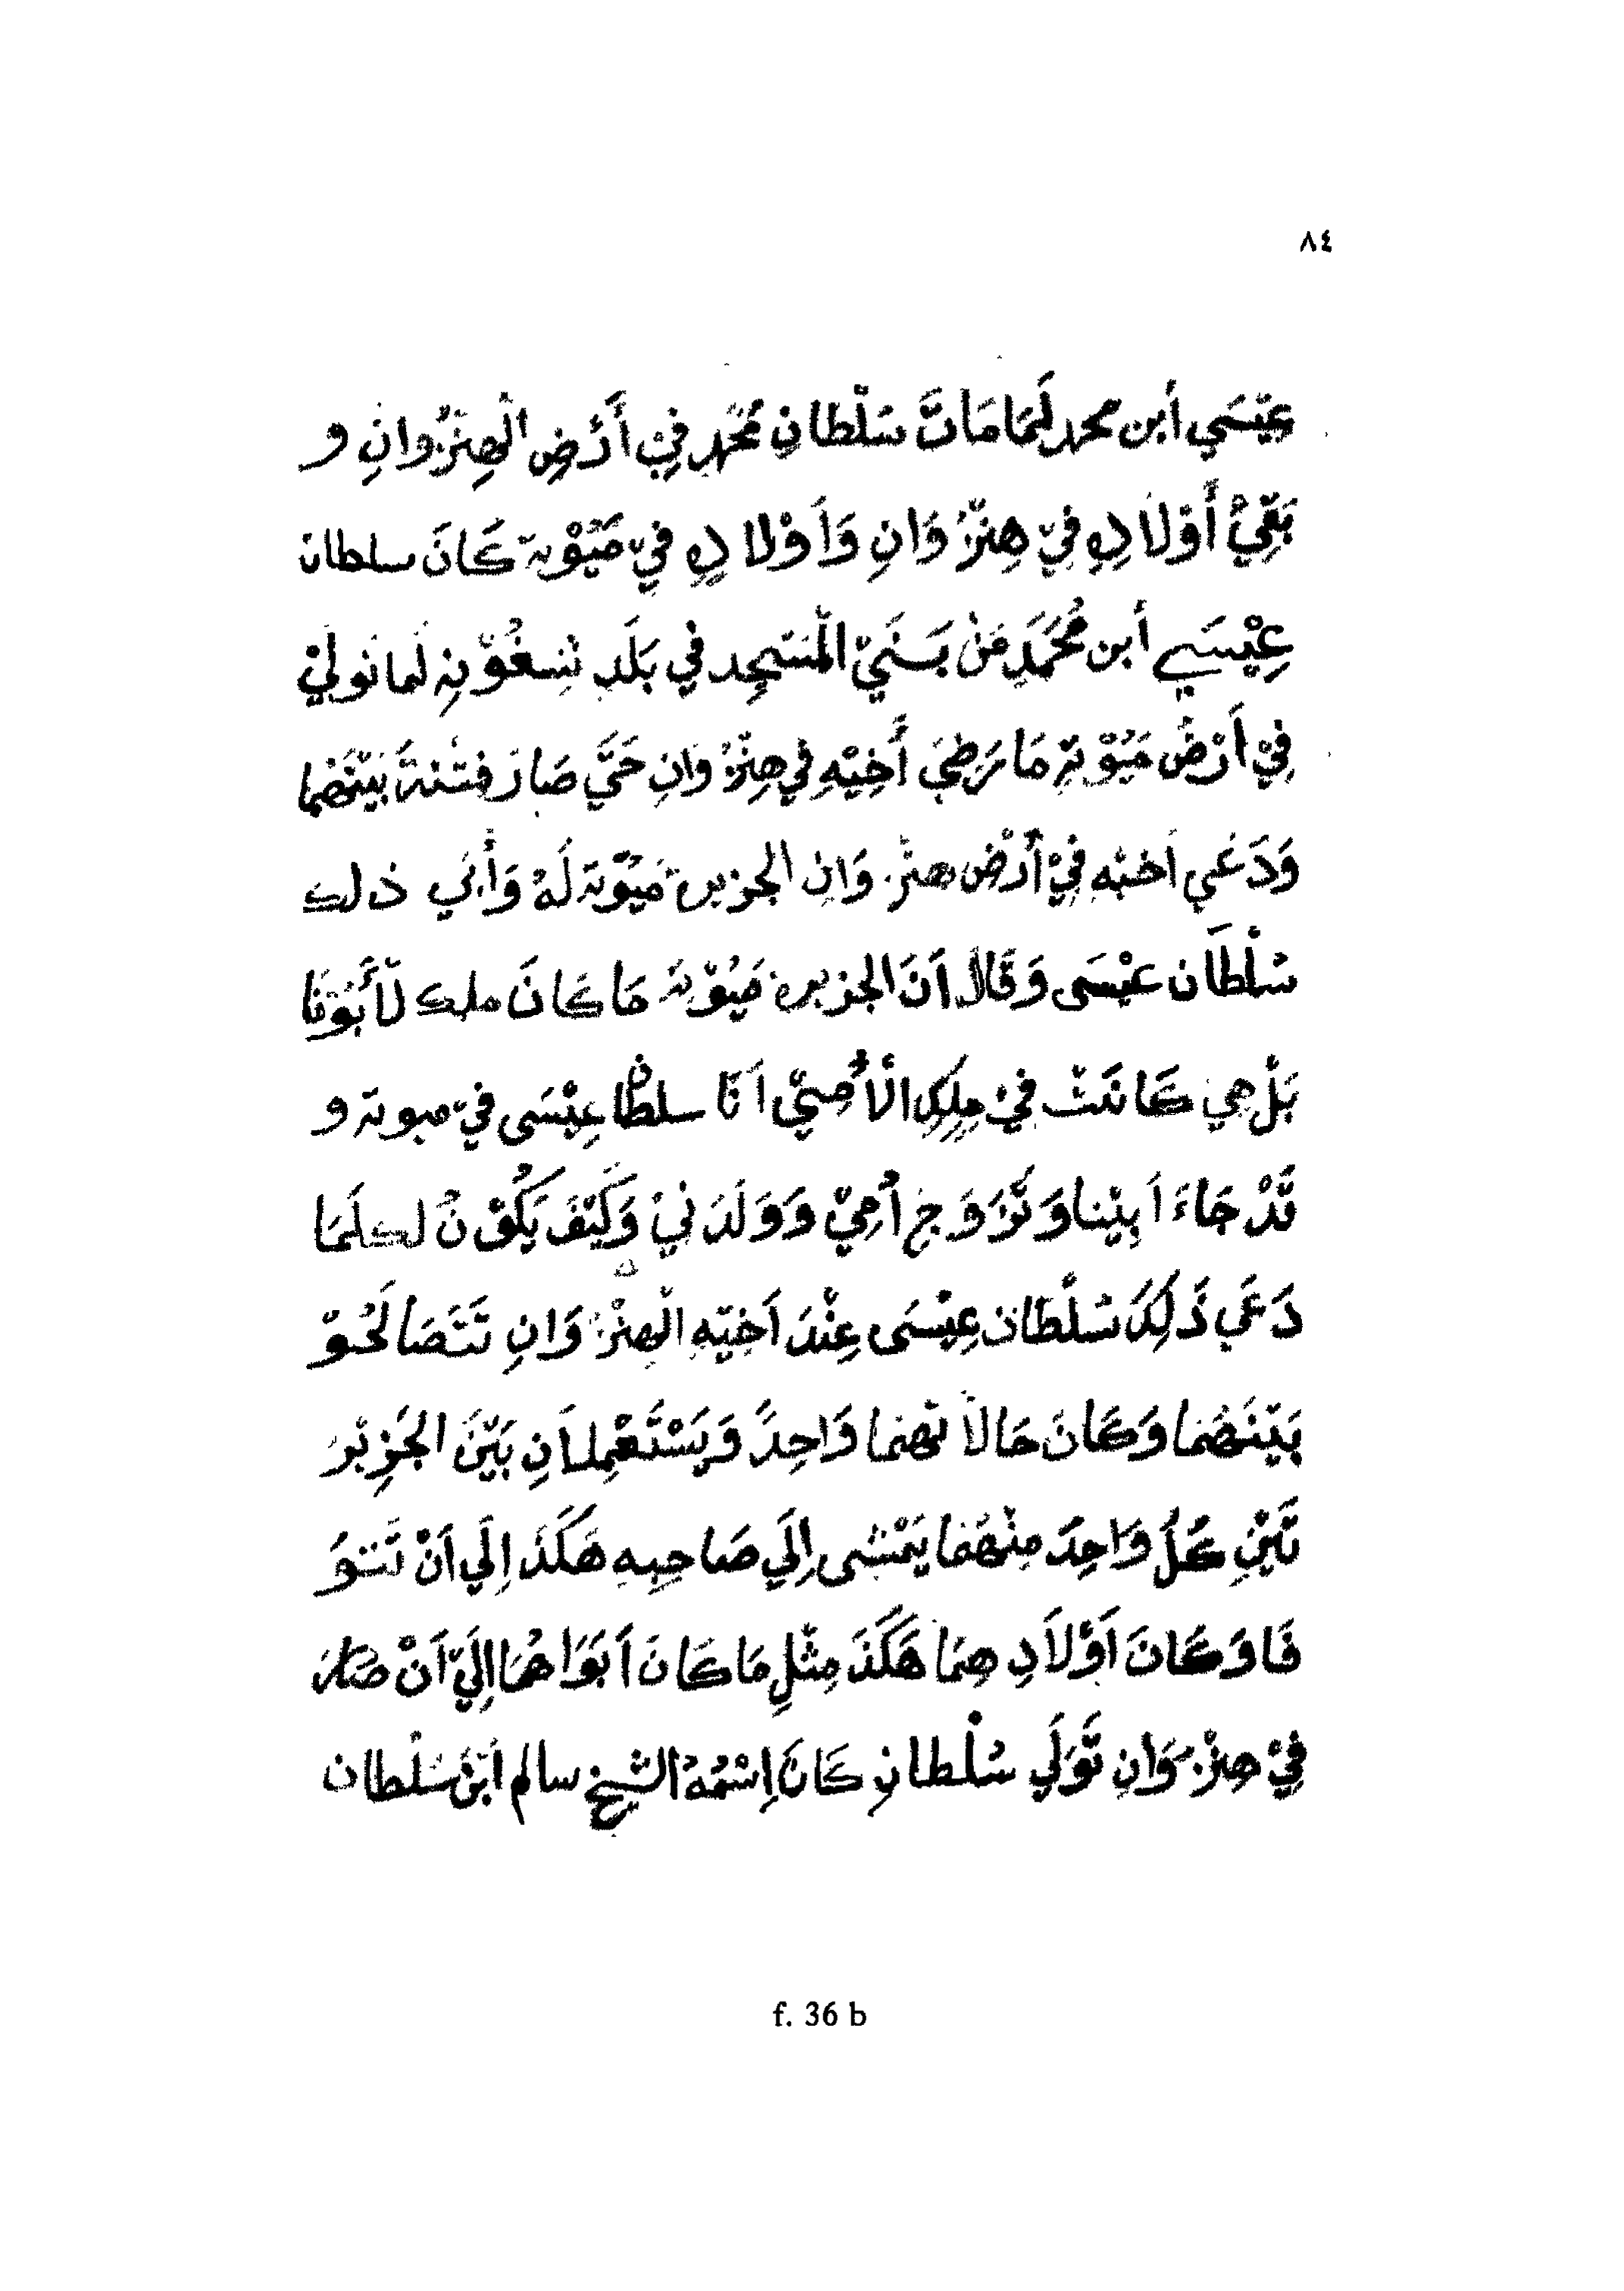 ٨٤
عِيْسَي أبن محمد لَمَا مَاتَ سَلْطَانِ مُحَمَّدِ فِيْ أَرْضِ الْهِنْزُوانِ و
بَقِيْ أَوْلَادِ فِيْ هِنْزُوَانِ وَاَوْلَادِ فِيْ مَيُوْتَة كَانَ سلطان
عِيْسَي أبن مُحَمَّدِ مَنْ بَنَيْ الْمَسْجِد فِي بَلَدِ شِنْغُوْنِ لَمَا تَوَلِيْ
فِيْ اَرْضُ مَيُوْتَةِ مَا رَضِيَ أَخِيْهِ فِي هِنْزُوَانِ حَتَّي صَارَ فِتْنَةً بَيْنَهُمَا
وَدَعَي اَخيْه فِيْ أَرْض هنزُوَانِ الجزيرة مَيُوْتَة لَهُ وَأَبَي ذلك
سُلْطَان عِيْسَى وَقَالَ اَنَ الجزيرة مَيُوْتَة مَا كَانَ ملك لَأَبُوْنَا
بَلْ هِيَ كَانَتْ فِيْ مِلِكِ الْاُمِيْ اَنَا سلطان عِيْسَى فِيْ ميوتة و
قَدْ جَاءَ اَبِيْنَا وَتَزَوَجَ اُمِيْ وَوَلَدَنِيْ وَكَيْفَ يَكُوْنُ لك لَمَا
دَعَي ذَلِكَ سُلْطَان عِيْسَى عِنْدَ اَخِيْهِ الْهِنْزُوَانِ تَتَصَالَحُوْ
بَيْنَهُمَا وَكَانَ حَالَاتهمَا وَاحِدً وَيَسْتَعْمِلَانِ بَيْنَ الجَزِيْرَ
تَيْنِ كُلُ وَاحِدَ مِنْهُمَا يَمْشى اِلَي صَاحِبِهِ هَكَذَ اِلَي اَنْ تَتَوَ
فَا وَكَانَ اَوْلَادِهِمَا هَكَذَ مِثْلِ مَا كَانَ اَبَوَاهُمَا اِلَيْ اَنْ صَارَ
فِيْ هِنْزُوَانِ تَوَلَي سُلْطَانِ كَانَ اِسْمُهُ الشيخ سالم اَبْنَ سُلْطَان
f. 36 b